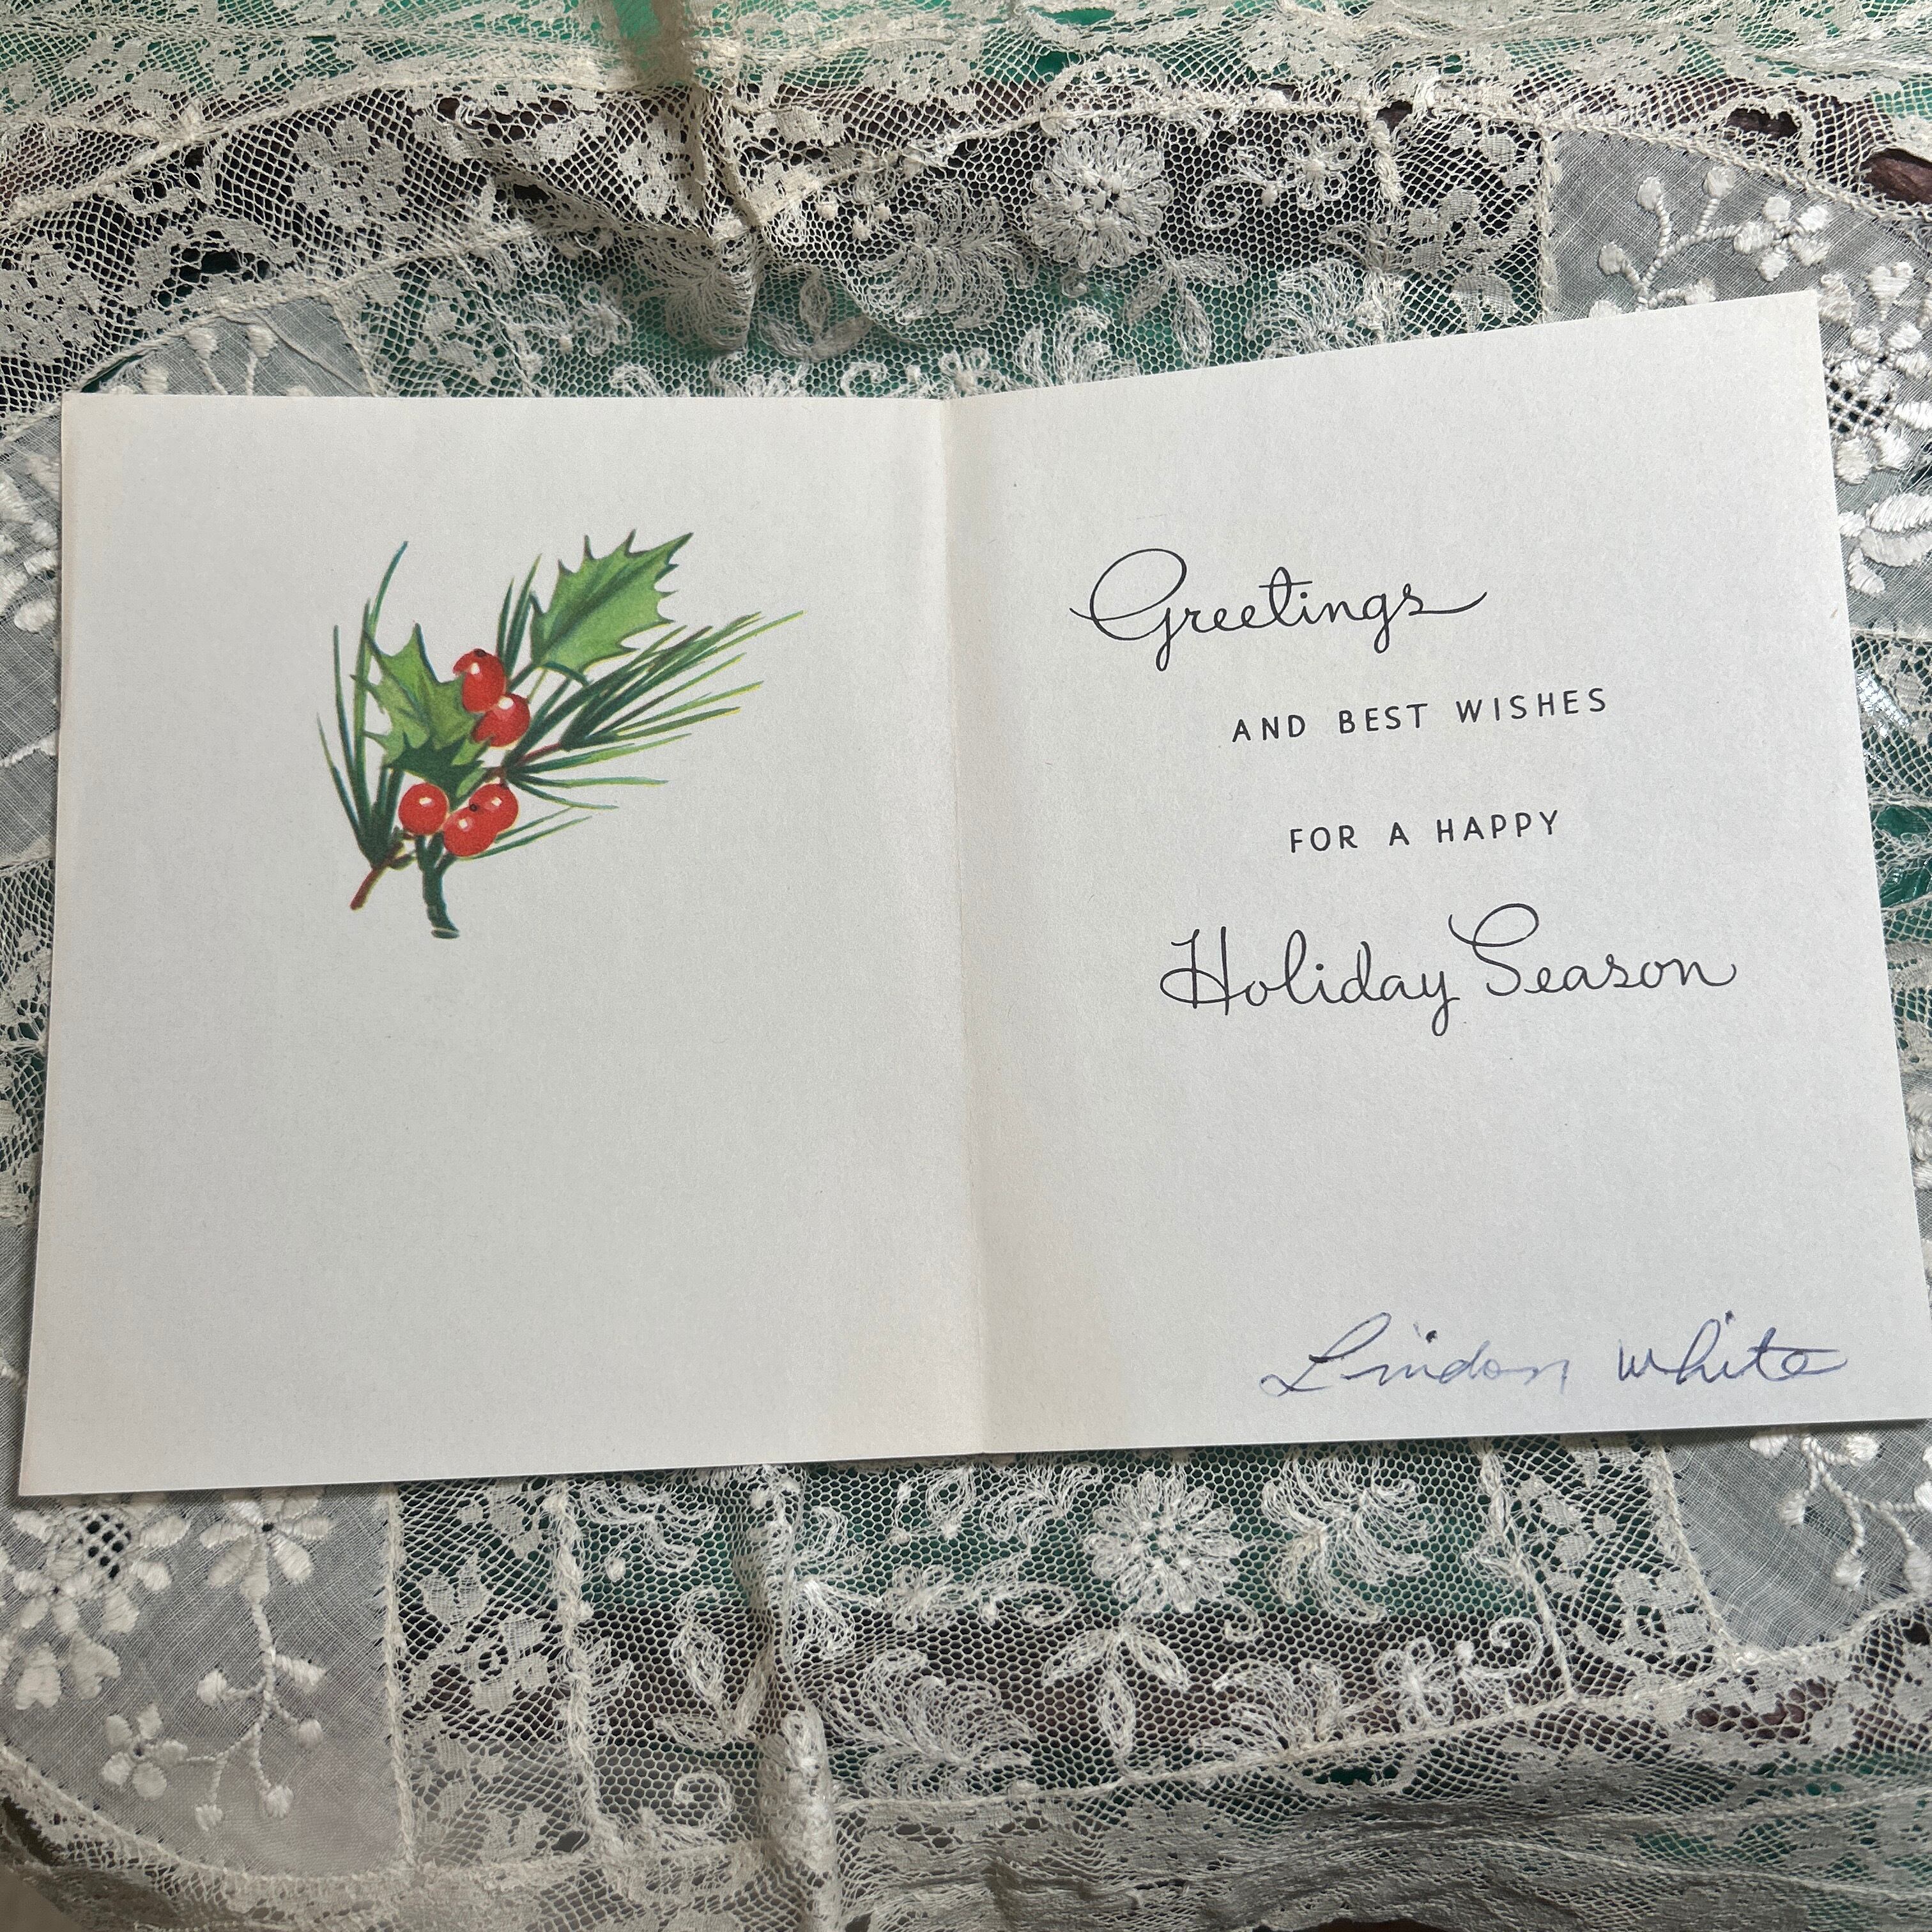 Greetings
AND BEST WISHES
FOR A HAPPY
Holiday Season
Lindon White